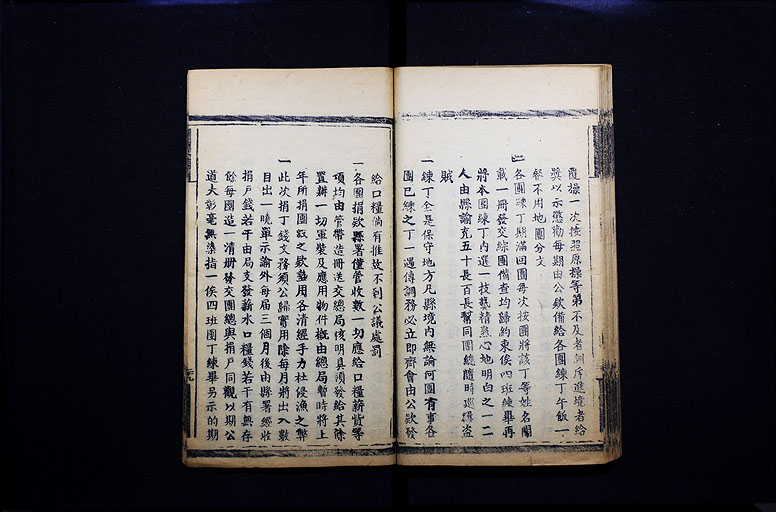 覆操一次按照原操等第不及者訓斥進境者給
獎以示懲勸每期由公欵備給各團練丁午飯一
餐不用地團分文
一各團練丁期滿回團每次按團將該丁等姓名開
載一冊發交綜團備查均歸約束俟四班練畢再
將本團練丁內選一技藝精熟心地明白之一二
人由縣諭充五十長百長幫同團總隨時巡緝盜
賊
一練丁全是保守地方凡縣境內無論何團有事各
團已練之丁一遇傳調務必立即齊會由公欵發
給口糧倘有推故不到公議處罰
一各團捐欵縣署僅管收數一切應給口糧薪貲等
項均由管帶造冊送交總局核明具領發給其除
置辦一切軍裝及應用物件概由總局暫時將上
年所捐團穀之欵墊用各清經手力杜侵漁之弊
一此次捐丁錢文務須公歸實用除每月將出入數
目出一曉單示諭外每屆三個月後由縣署經收
捐戶錢若干由局支發薪水口糧錢若干有無存
餘每團造一清冊發交團總與捐戶同觀以期公
道大彰毫無染指一俟四班團丁練畢另示的期